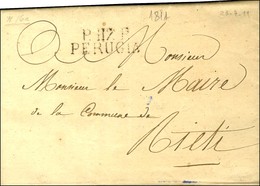 1811
P.117.P.
PERUGIA
Monsieur
Monsieur le Maire
de la Commune de
Rieti